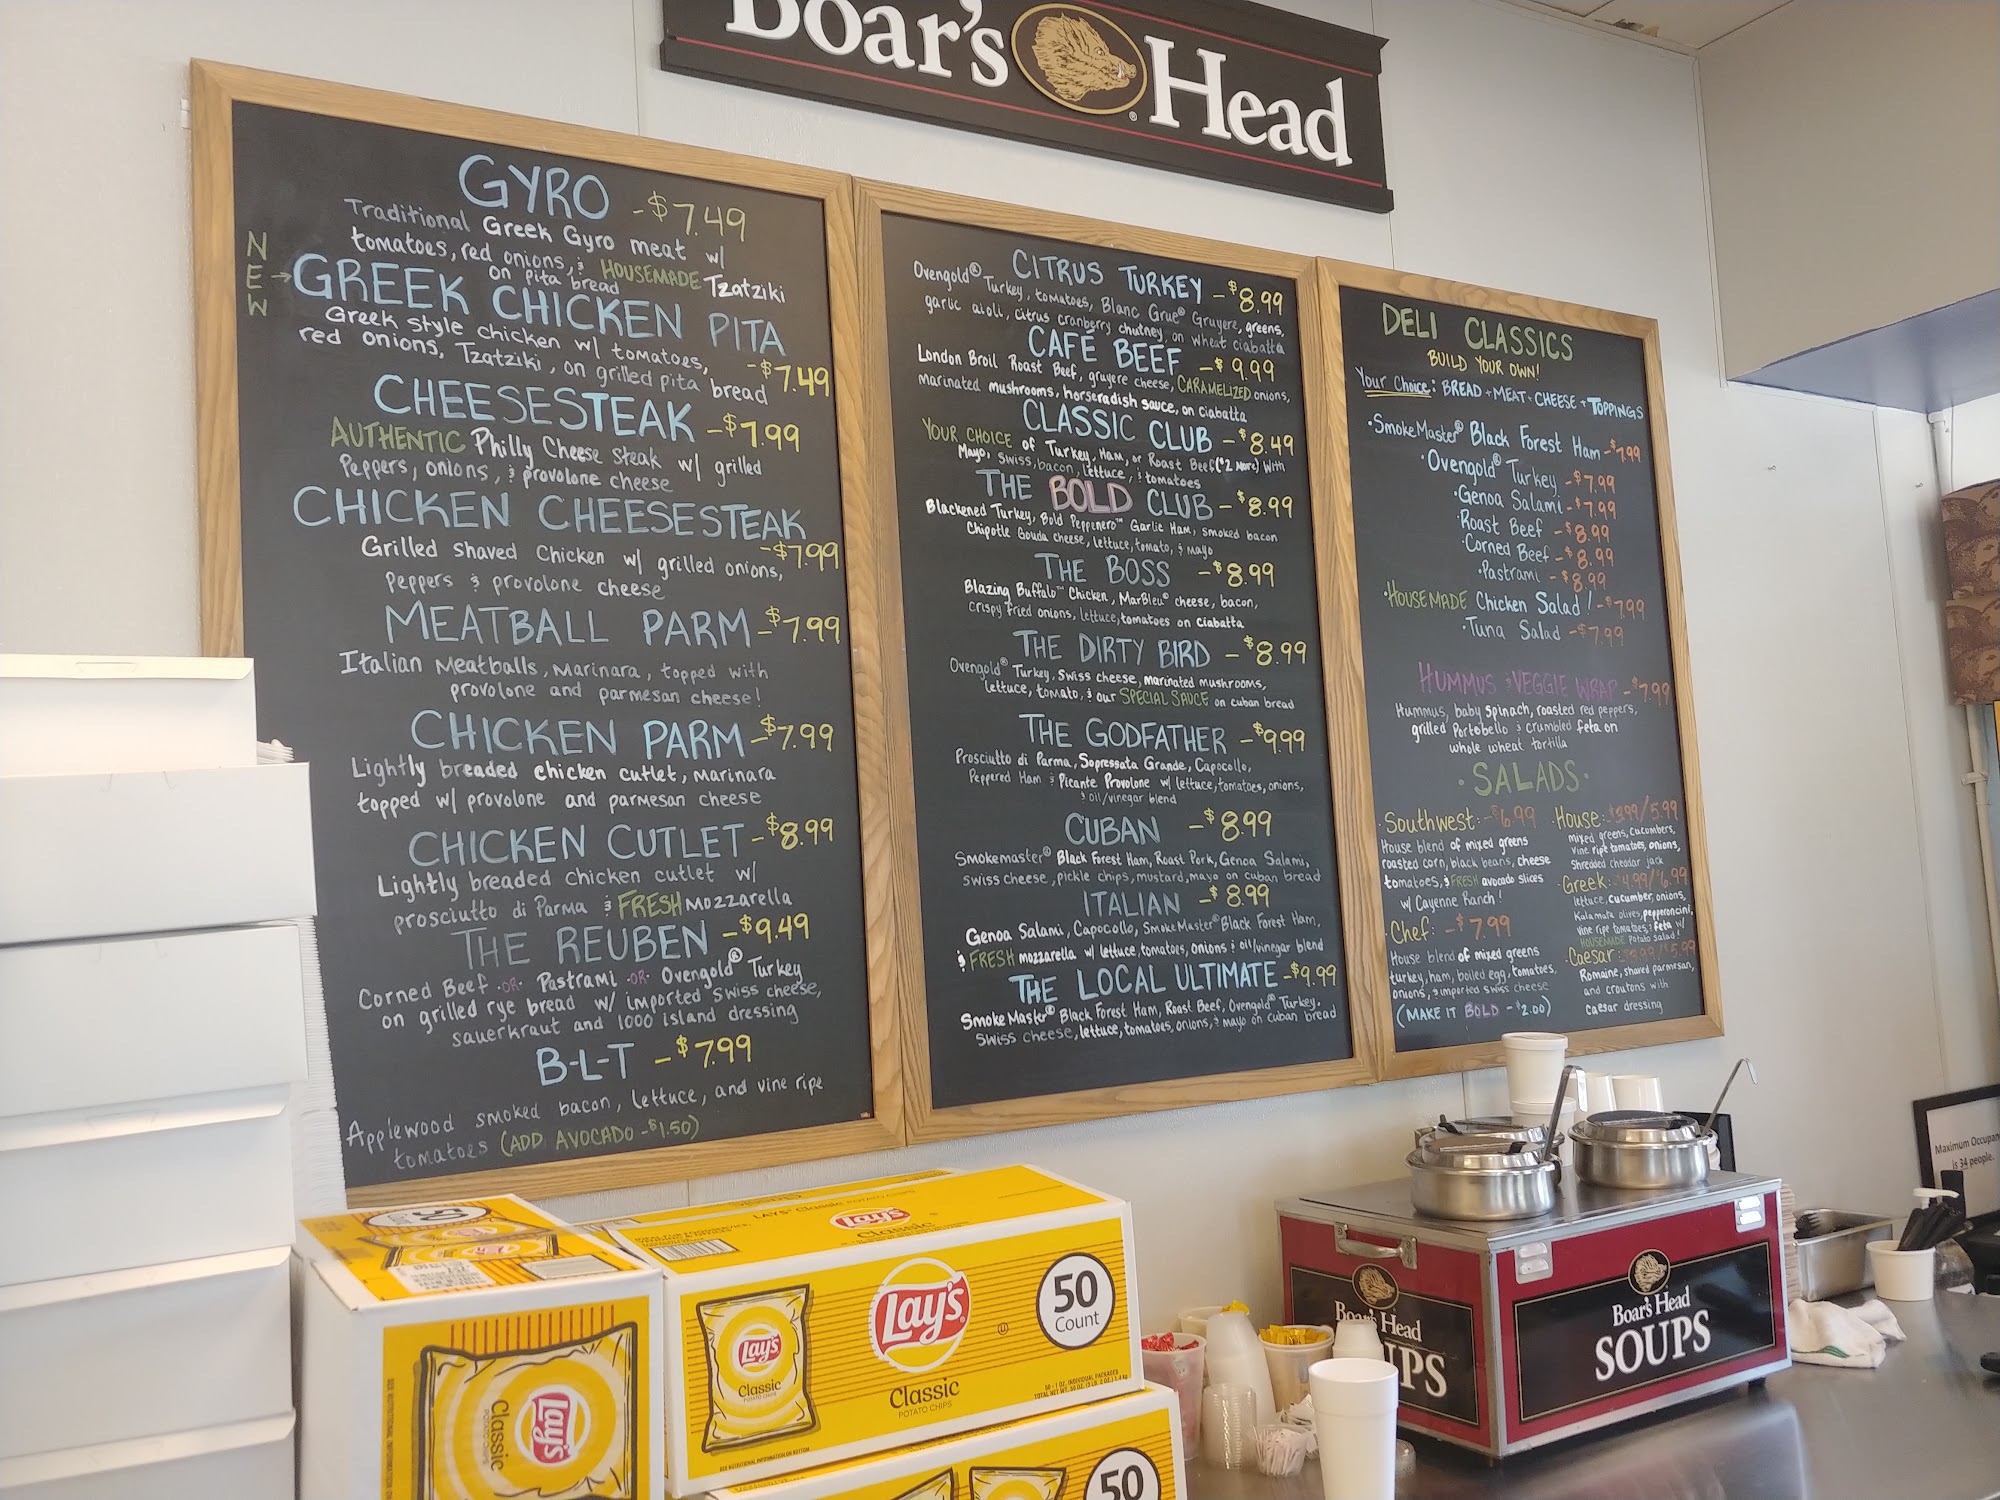 Boar's Head
GYRO -$7.49
Traditional Greek Gyro meat w/
tomatoes, red onions, & HOUSEMADE Tzatziki
on pita bread
NEW →
GREEK CHICKEN PITA
Greek style chicken w/ tomatoes, -$7.49
red onions, Tzatziki, on grilled pita bread
CHEESESTEAK -$7.99
AUTHENTIC Philly Cheese steak w/ grilled
Peppers, onions, & provolone cheese
CHICKEN CHEESESTEAK
-$7.99
Grilled shaved Chicken w/ grilled onions,
peppers & provolone cheese
MEATBALL PARM -$7.99
Italian Meatballs, marinara, topped with
provolone and parmesan cheese!
CHICKEN PARM -$7.99
Lightly breaded chicken cutlet, marinara
topped w/ provolone and parmesan cheese
CHICKEN CUTLET -$8.99
Lightly breaded chicken cutlet w/
prosciutto di Parma & FRESH mozzarella
THE REUBEN -$9.49
Corned Beef -OR- Pastrami -OR- Ovengold® Turkey
on grilled rye bread w/ imported Swiss cheese,
sauerkraut and 1000 island dressing
B-L-T -$7.99
Applewood smoked bacon, lettuce, and vine ripe
tomatoes (ADD AVOCADO -$1.50)
CITRUS TURKEY -$8.99
Ovengold® Turkey, tomatoes, Blanc Grue® Gruyere, greens,
garlic aioli, citrus cranberry chutney, on wheat ciabatta
CAFÉ BEEF -$9.99
London Broil Roast Beef, gruyere cheese, CARAMELIZED onions,
marinated mushrooms, horseradish sauce, on ciabatta
CLASSIC CLUB -$8.49
YOUR CHOICE of Turkey, Ham, or Roast Beef ($2 More) with
Mayo, Swiss, bacon, lettuce, & tomatoes
THE BOLD CLUB -$8.99
Blackened Turkey, Bold Peppenero™ Garlic Ham, smoked bacon
Chipotle Gouda cheese, lettuce, tomato, & mayo
THE BOSS -$8.99
Blazing Buffalo™ Chicken, MarBleu® cheese, bacon,
crispy fried onions, lettuce, tomatoes on ciabatta
THE DIRTY BIRD -$8.99
Ovengold® Turkey, Swiss cheese, marinated mushrooms,
lettuce, tomato, & our SPECIAL SAUCE on cuban bread
THE GODFATHER -$9.99
Prosciutto di Parma, Sopressata Grande, Capocollo,
Peppered Ham & Picante Provolone w/ lettuce, tomatoes, onions,
& oil/vinegar blend
CUBAN -$8.99
Smokemaster® Black Forest Ham, Roast Pork, Genoa Salami,
swiss cheese, pickle chips, mustard, mayo on cuban bread
ITALIAN -$8.99
Genoa Salami, Capocollo, SmokeMaster® Black Forest Ham,
& FRESH mozzarella w/ lettuce, tomatoes, onions & oil/vinegar blend
THE LOCAL ULTIMATE -$9.99
SmokeMaster® Black Forest Ham, Roast Beef, Ovengold® Turkey,
Swiss cheese, lettuce, tomatoes, onions, & mayo on cuban bread
DELI CLASSICS
BUILD YOUR OWN!
Your Choice: BREAD + MEAT + CHEESE + TOPPINGS
·SmokeMaster® Black Forest Ham -$7.99
·Ovengold® Turkey -$7.99
·Genoa Salami -$7.99
·Roast Beef -$8.99
·Corned Beef -$8.99
·Pastrami -$8.99
·HOUSEMADE Chicken Salad! -$7.99
·Tuna Salad -$7.99
HUMMUS & VEGGIE WRAP -$7.99
Hummus, baby spinach, roasted red peppers,
grilled Portobello & crumbled feta on
whole wheat tortilla
·SALADS·
·Southwest: -$6.99
House blend of mixed greens
roasted corn, black beans, cheese
tomatoes, & FRESH avocado slices
w/ Cayenne Ranch!
·Chef: -$7.99
House blend of mixed greens
turkey, ham, boiled egg, tomatoes,
onions, & imported swiss cheese
(MAKE IT BOLD -$2.00)
·House: $3.99/5.99
mixed greens, cucumbers,
vine ripe tomatoes, onions,
Shredded cheddar jack
·Greek: $4.99/$6.99
lettuce, cucumber, onions,
Kalamata olives, pepperoncini,
vine ripe tomatoes, & feta w/
HOUSEMADE Potato salad!
·Caesar: $3.99/$5.99
Romaine, shaved parmesan,
and croutons with
caesar dressing
Maximum Occupan
is 34 people.
50
LAY'S Classic
Lay's
Classic
Lay's
Classic
POTATO CHIPS
50
Count
Lay's
Classic
Lay's
Classic
50
Boar's Head
UPS
Boar's Head
SOUPS